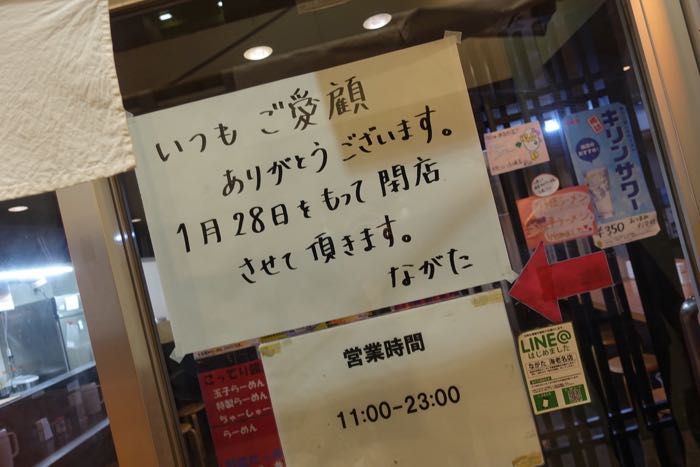 いつも ご愛顧
ありがとうございます。
1月28日をもって閉店
させて頂きます。
ながた
営業時間
11:00-23:00
こってり醤
玉子らーめん
特製らーめん
ちゃーしゅー
らーめん
キリンサワー
¥350
LINE@
はじめました
ながた 海老名店